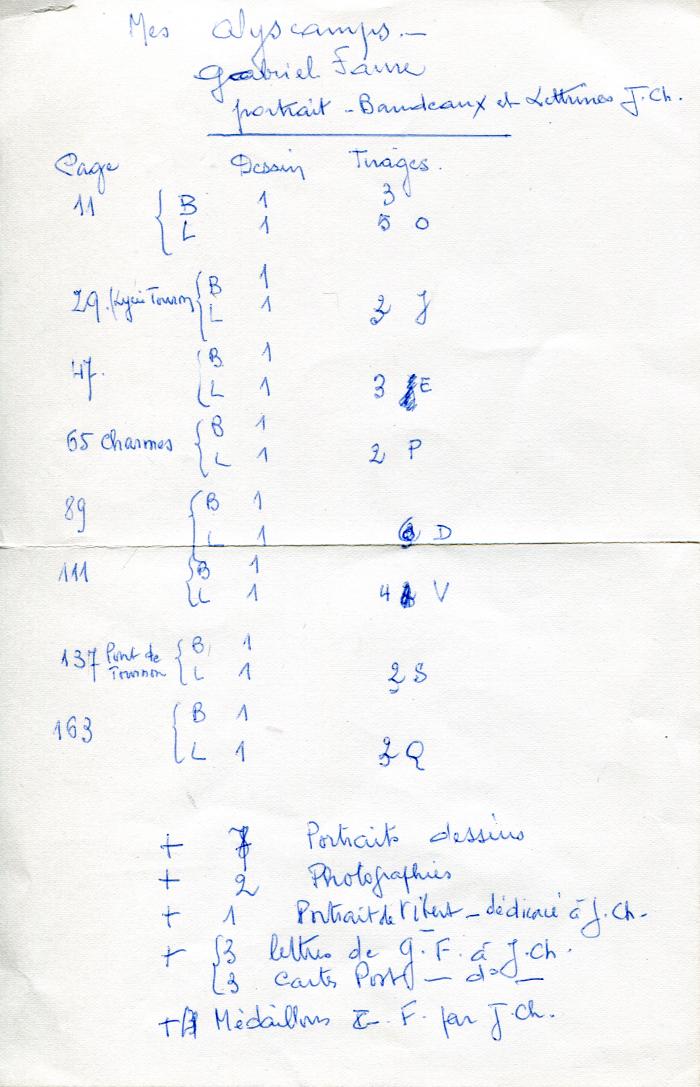 Mes Alyscamps. —
Gabriel Faure
portrait - Bandeaux et Lettrines J. Ch.
Page Dessin Tirages.
11 { B 1 3
L 1 5 O
29. (Lycée Tournon { B 1
L 1 J
47. { B 1
L 1 3 E
65 Charmes { B 1
L 1 2 P
89 { B 1
L 1 D
111 { B 1
L 1 4 V
137 Pont de Tournon { B 1
L 1 2 S
163 { B 1
L 1 Q
+ Portraits dessins
+ 2 Photographies
+ 1 Portrait de — dédicacé à J. Ch.
+ { 3 lettres de G. F. à J. Ch.
3 cartes Post — do —
+ Médaillons F. par J. Ch.